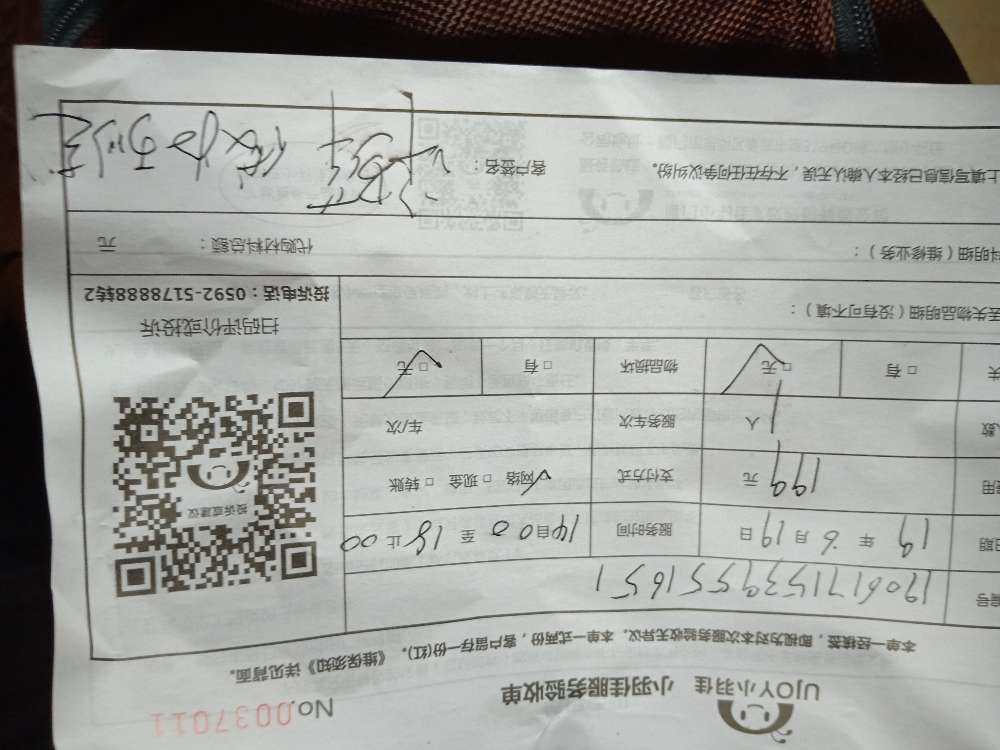 UJOY小羽佳 小羽佳服务验收单
No.0037011
本单一经核签，即视为对本次服务验收无异议。本单一式两份，客户留存一份(红)。《维保须知》详见背面。
编号 19061715395516 51
日期 19 年 6 月 19 日 服务时间 14 自 00 至 18 止 00
用 199 元 支付方式 网络 □ 现金 □ 转账
数 1 人 服务车次 车/次
失 □ 有 □ 无 物品损坏 □ 有 □ 无
丢失物品明细（没有可不填）：
投诉或建议
扫码评价或投诉
投诉电话：0592-5178888转2
料明细（维修业务）： 代购材料总额： 元
上填写信息已经本人确认无误，不存在任何争议纠纷。 客户签名：